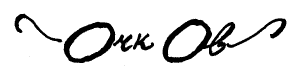 Очк Ов